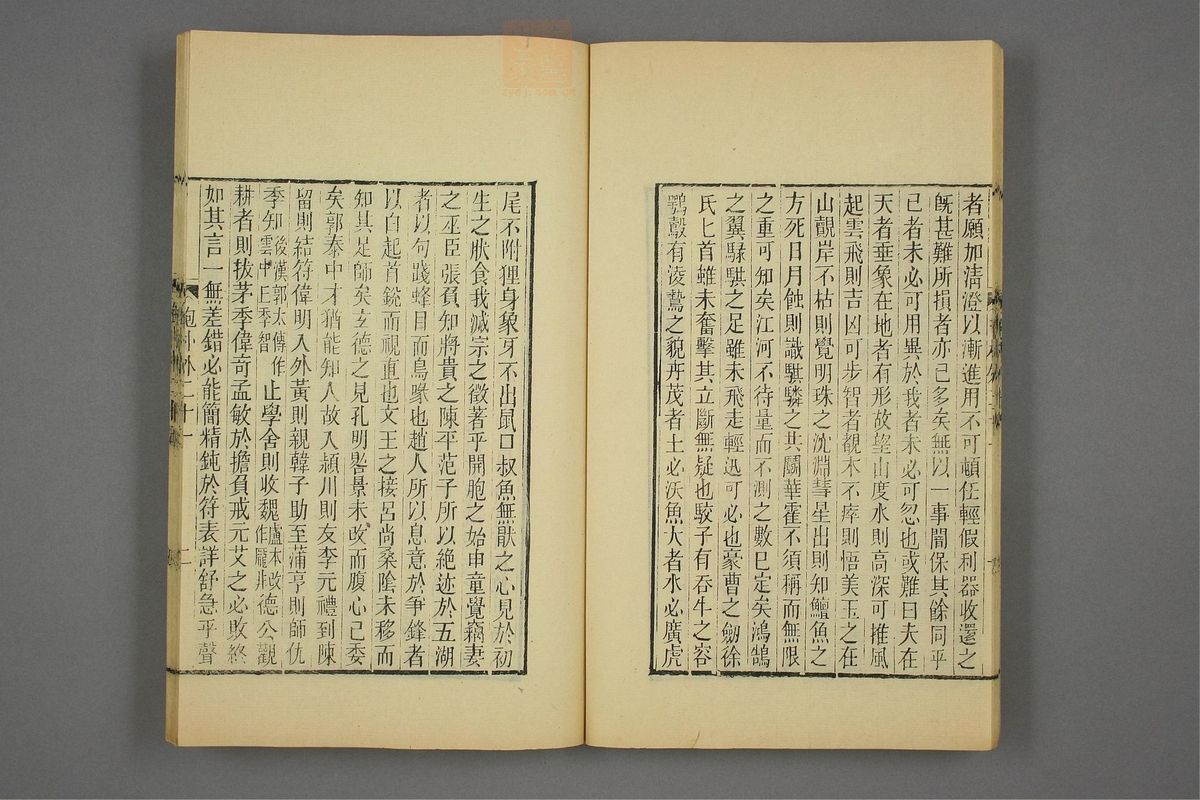 者願加清澄以漸進用不可頓任輕假利器收還之
旣甚難所損者亦已多矣無以一事闇保其餘同乎
已者未必可用異於我者未必可忽也或難曰夫在
天者垂象在地者有形故望山度水則高深可推風
起雲飛則吉凶可步智者覩木不瘁則悟美玉之在
山覿岸不枯則覺明珠之沈淵彗星出則知鱣魚之
方死日月蝕則識騏驎之共鬭華霍不須稱而無限
之重可知矣江河不待量而不測之數已定矣鴻鵠
之翼騄騏之足雖未飛走輕迅可必也豪曹之劒徐
氏匕首雖未奮擊其立斷無疑也駮子有吞牛之容
鶚鷇有淩鷙之貌卉茂者土必沃魚大者水必廣虎
尾不附狸身象牙不出鼠口叔魚無猒之心見於初
生之狀食我滅宗之徵著乎開胞之始申童覺竊妻
之巫臣張負知將貴之陳平范子所以絶迹於五湖
者以句踐蜂目而鳥喙也趙人所以息意於爭鋒者
以白起首銳而視直也文王之接呂尚桑陰未移而
知其足師矣玄德之見孔明晷景未改而腹心已委
矣郭泰中才猶能知人故入潁川則友李元禮到陳
留則結符偉明入外黃則親韓子助至蒲亭則師仇
季知後漢郭太傳作雲中王季智止學舍則收魏盧本改作龎非德公觀
耕者則拔茅季偉奇孟敏於擔負戒元艾之必敗終
如其言一無差錯必能簡精鈍於符表詳舒急乎聲
抱朴外二十一
二